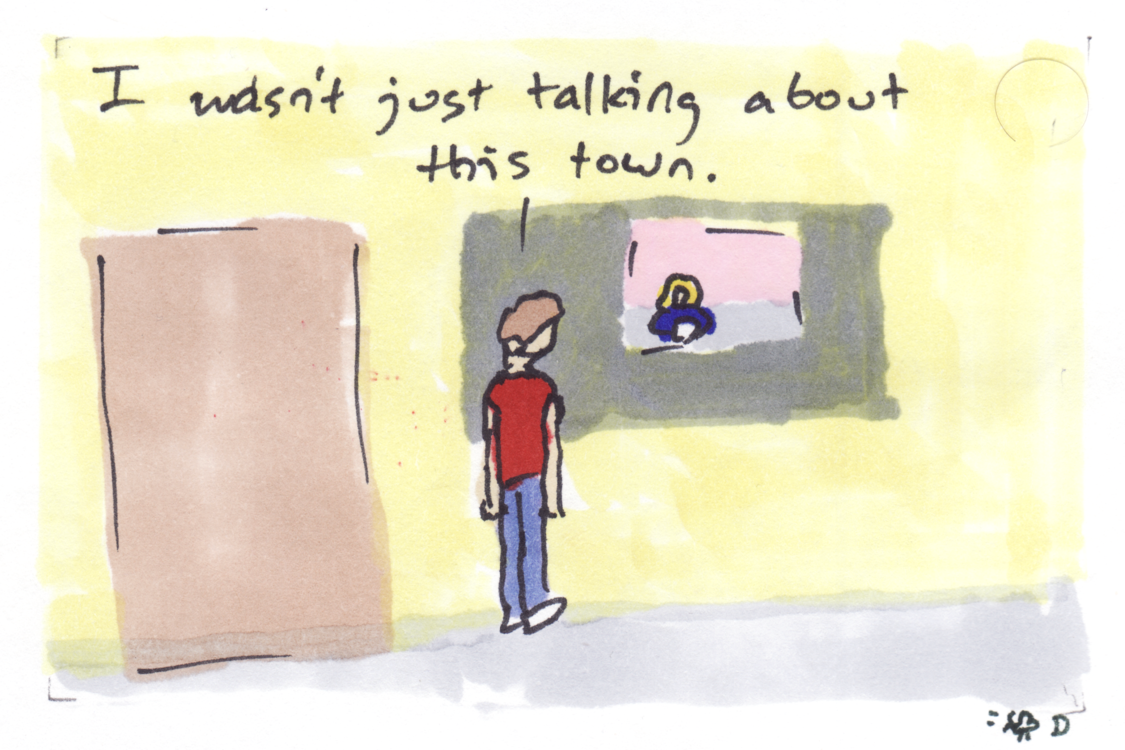 I wasn't just talking about
this town.